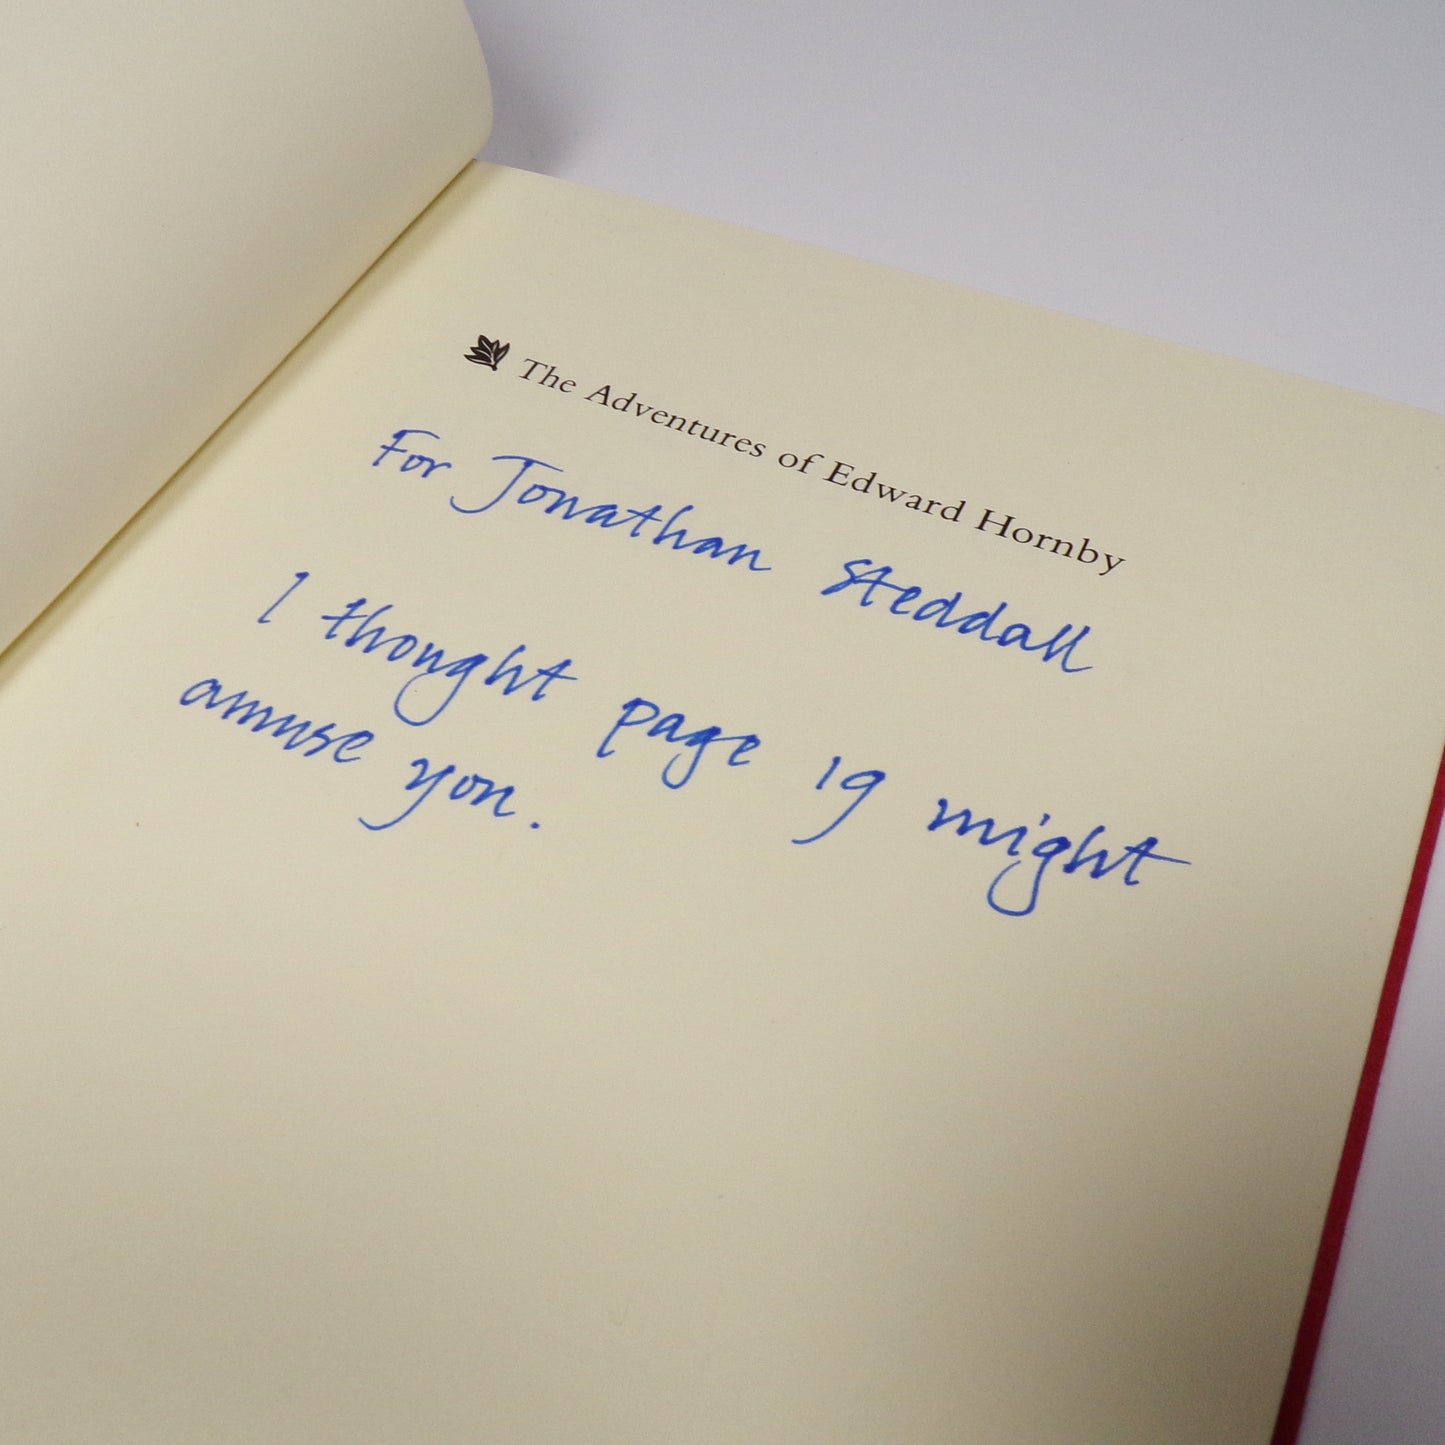 The Adventures of Edward Hornby
For Jonathan Steddall
I thought page 19 might
amuse you.